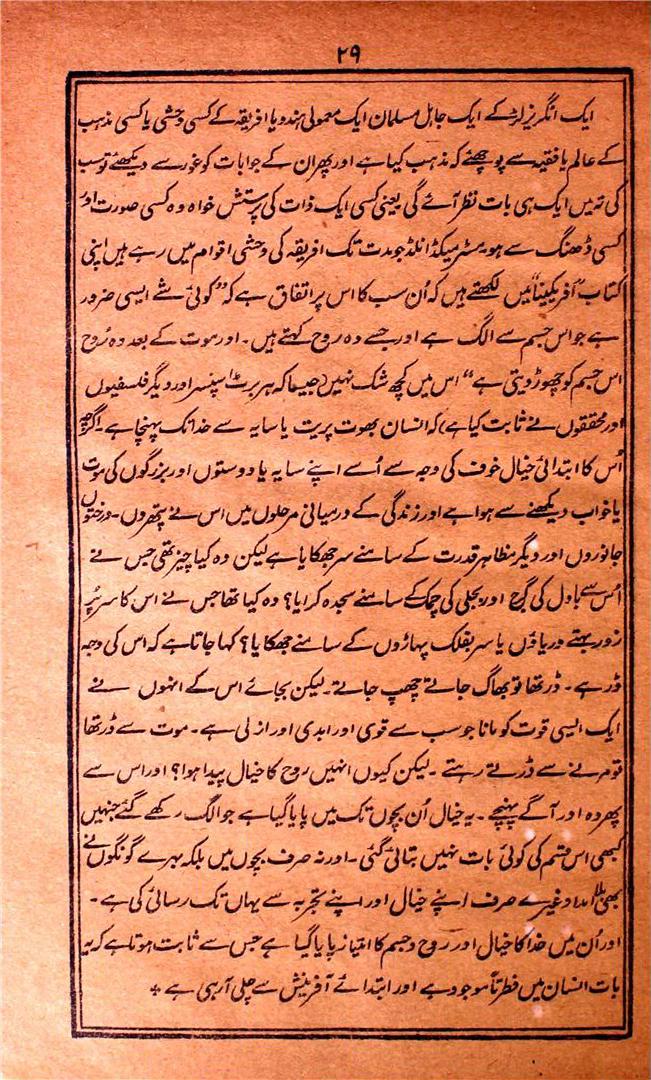 ۲۹
ایک انگریز لڑکے ایک جاہل مسلمان ایک معمولی ہندو یا افریقہ کے کسی وحشی یا کسی مذہب
کے عالم یا فقیہ سے پوچھئے کہ مذہب کیا ہے اور پھر ان کے جوابات کو غور سے دیکھئے تو سب
کی تہ میں ایک ہی بات نظر آئے گی یعنی کسی ایک ذات کی پرستش خواہ وہ کسی صورت اور
کسی ڈھنگ سے ہو۔ مسٹر میکڈانلڈ جو مدت تک افریقہ کی وحشی اقوام میں رہے ہیں اپنی
کتاب "افریکینا" میں لکھتے ہیں کہ اُن سب کا اس پر اتفاق ہے کہ "کوئی شے ایسی ضرور
ہے جو اس جسم سے الگ ہے اور جسے وہ روح کہتے ہیں۔ اور موت کے بعد وہ رُوح
اس جسم کو چھوڑ دیتی ہے" اس میں کچھ شک نہیں (جیسا کہ ہربرٹ اسپنسر اور دیگر فلسفیوں
اور محققوں نے ثابت کیا ہے) کہ انسان بھوت پریت یا سایہ سے خدا تک پہنچا ہے۔ اگرچہ
اُس کا ابتدائی خیال خوف کی وجہ سے اُسے اپنے سایہ یا دوستوں اور بزرگوں کی موت
یا خواب دیکھنے سے ہوا ہے اور زندگی کے درمیانی مرحلوں میں اس نے پتھروں۔ درختوں
جانوروں اور دیگر مظاہر قدرت کے سامنے سر جھکایا ہے لیکن وہ کیا چیز تھی جس نے
اُس سے بادل کی گرج اور بجلی کی چمک کے سامنے سجدہ کرایا؟ وہ کیا تھا جس نے اس کا سر پُر
زور بہتے دریاؤں یا سر بفلک پہاڑوں کے سامنے جھکایا؟ کہا جاتا ہے کہ اس کی وجہ
ڈر ہے۔ ڈر تھا تو بھاگ جاتے چھپ جاتے۔ لیکن بجائے اس کے انہوں نے
ایک ایسی قوت کو مانا جو سب سے قوی اور ابدی اور ازلی ہے۔ موت سے ڈر تھا
تو مرنے سے ڈرتے رہتے۔ لیکن کیوں انہیں روح کا خیال پیدا ہوا؟ اور اس سے
پھر وہ اور آگے پہنچے۔ یہ خیال اُن بچوں تک میں پایا گیا ہے جو الگ رکھے گئے جنہیں
کبھی اس قسم کی کوئی بات نہیں بتائی گئی۔ اور نہ صرف بچوں میں بلکہ بہرے گونگوں نے
بھی بلا امداد غیرے صرف اپنے خیال اور اپنے تجربہ سے یہاں تک رسائی کی ہے۔
اور اُن میں خدا کا خیال اور روح و جسم کا امتیاز پایا گیا ہے جس سے ثابت ہوتا ہے کہ یہ
بات انسان میں فطرتاً موجود ہے اور ابتدائے آفرینش سے چلی آرہی ہے *